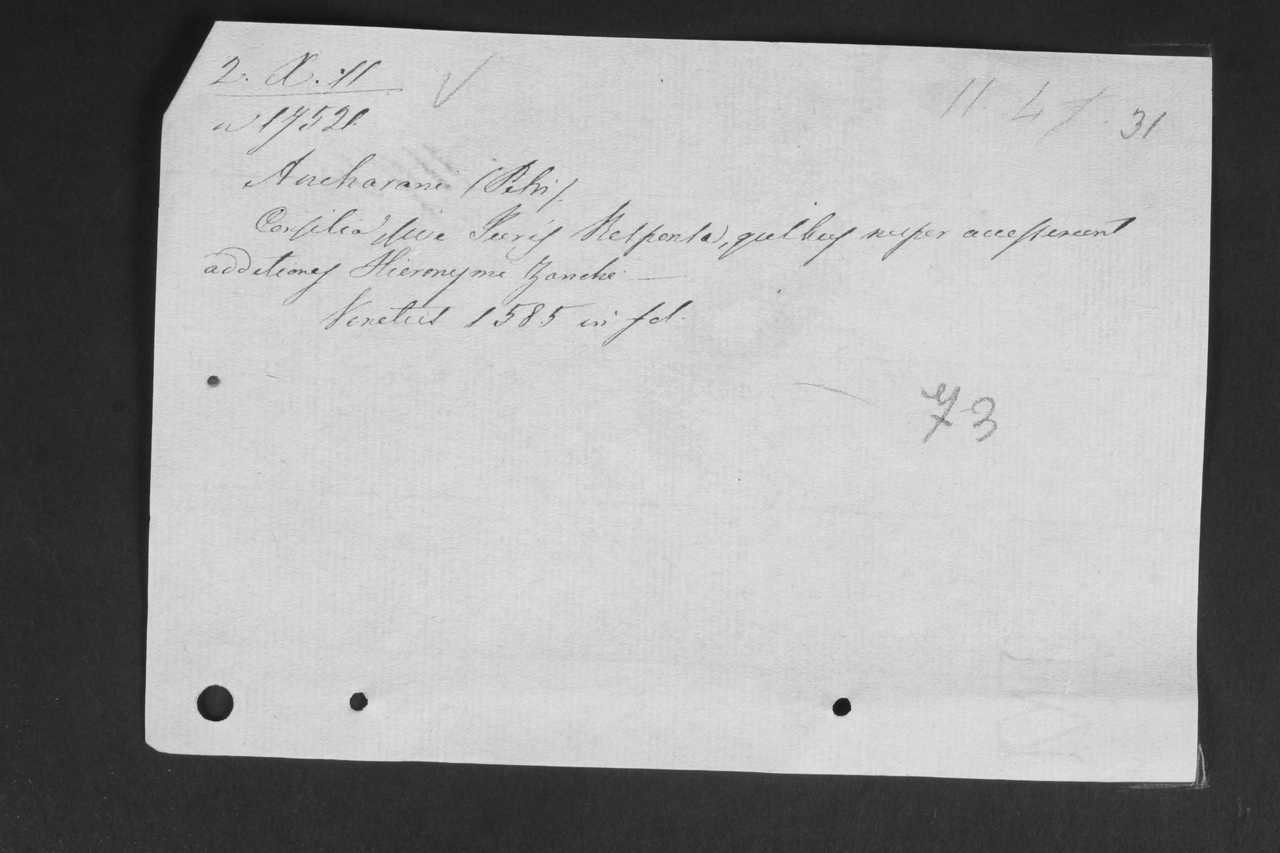 2. X. 11
11. 4 f. 31
n 17521
Ancharani (Petri)
Consilia sive Juris Responsa, quibus nuper accesserunt
additiones Hieronymi Zanchi
Venetiis 1585 in fol.
73